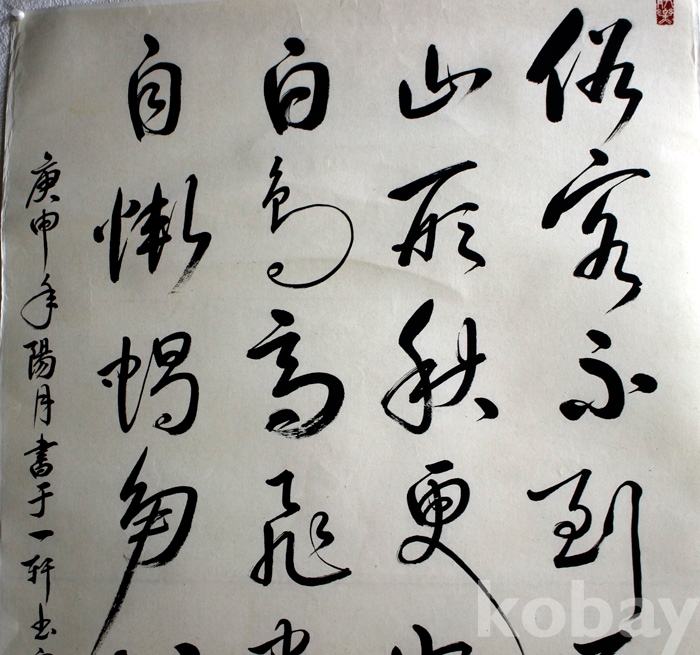 俗客不到
山形秋更
白鳥高飛
自慚蝸角
庚申年陽月書于一軒
kobay